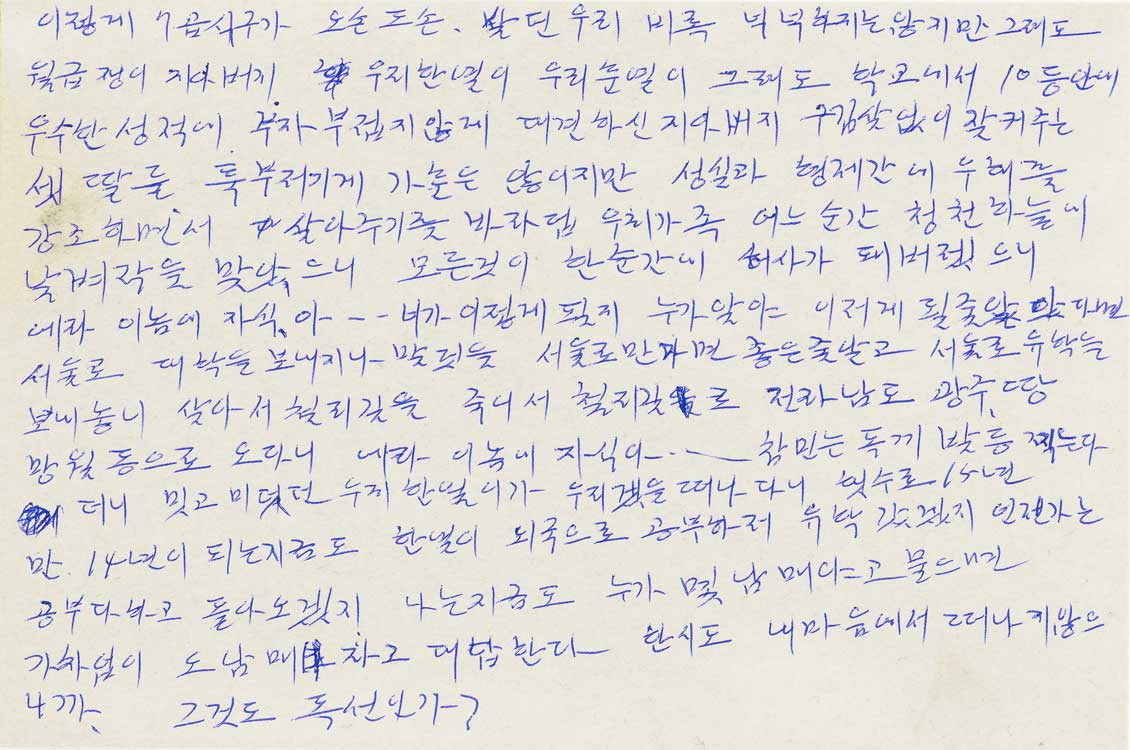 이렇게 7급식구가 오손도손. 살던 우리 비록 넉넉하지는않지만 그래도
월급쟁이 지아버지 우리한열이 우리훈열이 그래도 학교에서 10등안에
우수한성적에 주자부럽지않게 대견하신 지아버지 구김살없이 잘커주는
셋 딸들 특부저기게 가훈은 않이지만 성실과 형제간에 우해를
강조하면서 살아주기를 바라덥 우리가족 어느순간 청천하늘에
날벼락을 맞났으니 모든것이 한순간에 허사가 돼버렸으니
에라 이놈에 자식 아--- 너가이렇게 될지 누가알아 이저게 될줄 알았다면
서울로 대학을보내지나 말것을 서울로만가면 좋은줄알고 서울로유학을
보내놓니 살아서천리길을 죽어서 천리길로 전라남도 광주땅
망월동으로 오다니 에라 이놈에 자식아... 참믿는 독끼 발등 찍는다
더니 믿고미덨던 우리한열이가 우리곁을떠나다니 햇수로15년
만.14년이되는지금도 한열이 외국으로 공부하러 유학 갔겠지 언젠가는
공부다하고 돌아오겠지 나는지금도 누가 몇남매야고 물으며는
가차없이 오남매라고 대답한다 한시도 내마음에서 떠나지않으
니까. 그것도 독선인가?